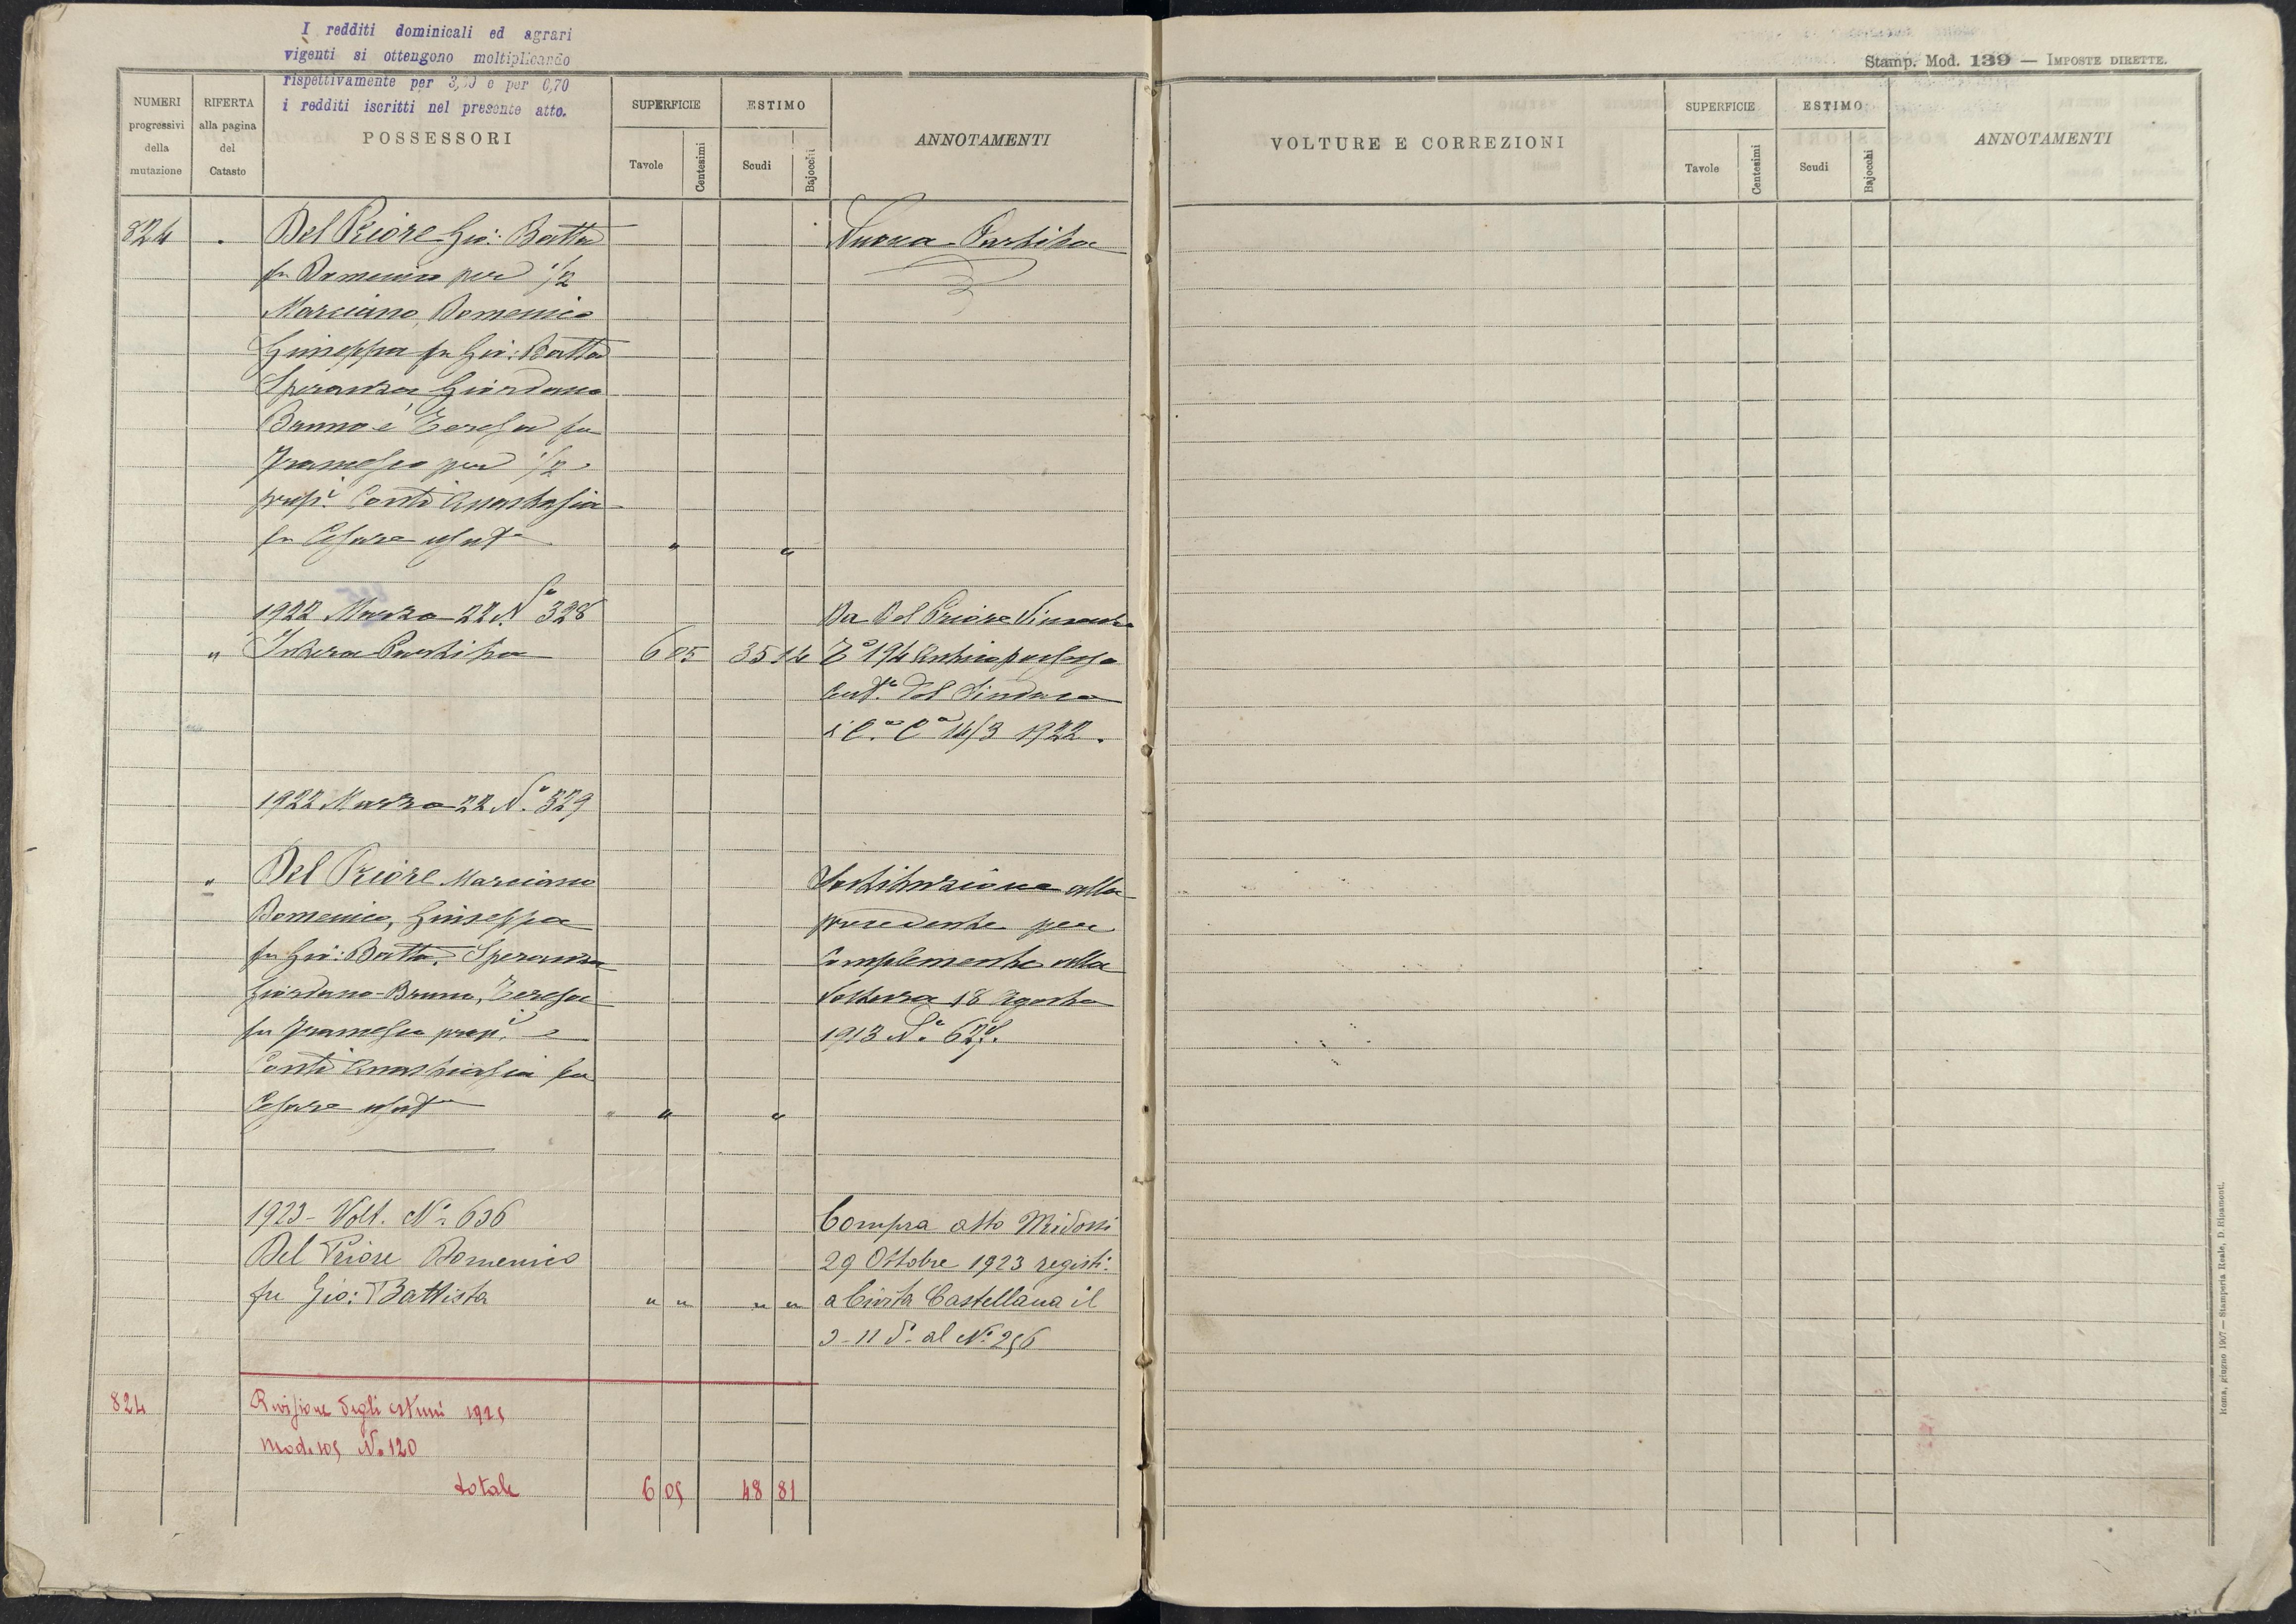 I redditi dominicali ed agrari
vigenti si ottengono moltiplicando
rispettivamente per 3,50 e per 0,70
i redditi iscritti nel presente atto.
Stamp. Mod. 139 — IMPOSTE DIRETTE.
NUMERI progressivi della mutazione
RIFERTA alla pagina del Catasto
POSSESSORI
SUPERFICIE
Tavole
Centesimi
ESTIMO
Scudi
Bajocchi
ANNOTAMENTI
VOLTURE E CORREZIONI
SUPERFICIE
Tavole
Centesimi
ESTIMO
Scudi
Bajocchi
ANNOTAMENTI
824 Del Priore Gio: Batta Nuova Partita
fu Domenico per 1/2
Marciano, Domenico
Giuseppa fu Gio: Batta
Speranza, Giordano
Bruno e Teresa fu
Francesco per 1/2
propi. Conti Anastasia
fu Cesare usuf.
1922 Marzo 22 N.o 328 Da Del Priore Vincenzo
" Intera Partita 6 05 35 14 194 Antico possesso
Cert.o del Sindaco
14/3 1922.
1922 Marzo 22 N.o 329
" Del Priore Marciano Sostituzione alla
Domenico, Giuseppa precedente per
fu Gio: Batta, Speranza complemento alla
Giordano-Bruno, Teresa voltura 18 Agosto
fu Francesco propi. e 1913 N.o 627.
Conti Anastasia fu
Cesare usuf. " "
1923 - Volt. N.o 636 Compra atto Midossi
Del Priore Domenico 29 Ottobre 1923 registr.
fu Gio: Battista " " " " a Civita Castellana il
3-11 d.o al N.o 256
824 Revisione degli estimi 1925
Mod. 105 No 120
totale 6 05 48 81
Roma, giugno 1907 — Stamperia Reale, D. Ripamonti.